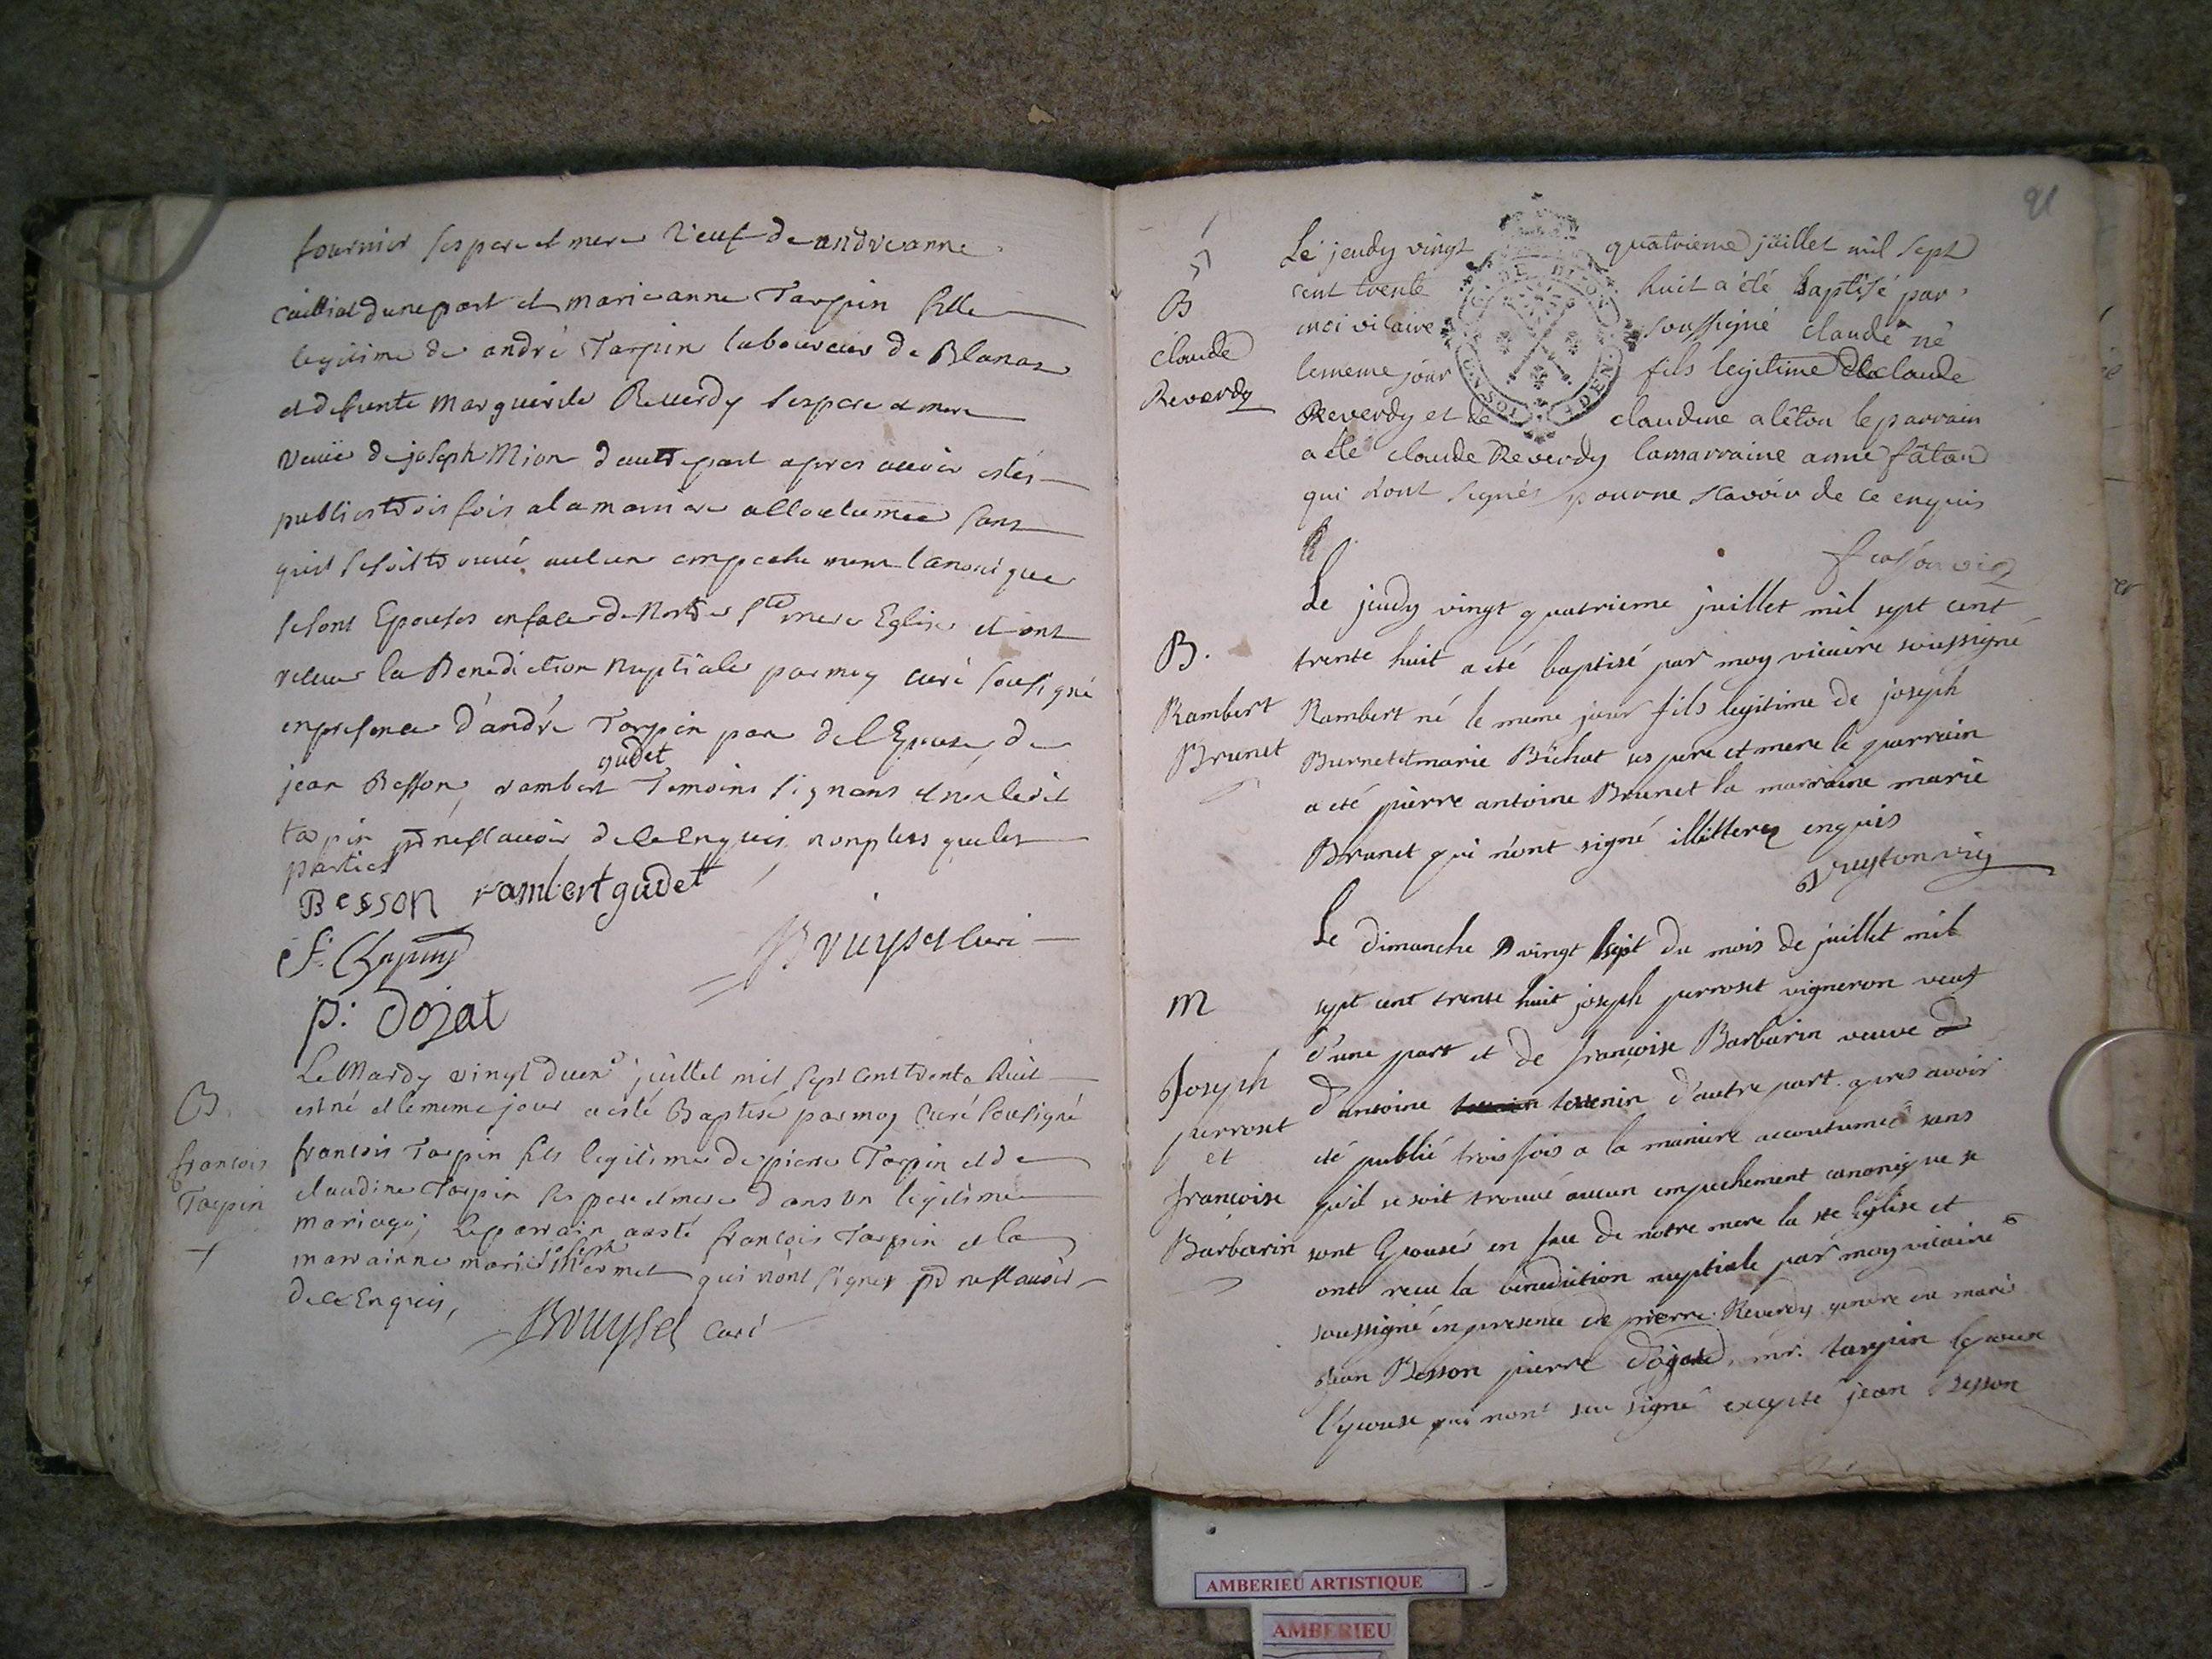 fournier ses pere et mere veuf de andreanne
d'une part et marieanne Tarpin fille
legitime de andré Tarpin laboureur de Blanas
et defunte Marguerite Reverdy ses pere et mere
veuve de joseph Mion d'autre part apres avoir estés
publiés trois fois a la maniere accoutumee sans
qu'il se soit trouvé aucun empechement canonique
se sont Epousés en face de Notre Ste mere Eglise et ont
receu la Benediction Nuptiale par moy curé sousigné
en presence d'andré Tarpin pere de l'Epouse, de
jean Besson, rambert gudet Temoins signans et non ledit
tarpin pr ne scavoir de ce Enquis, non plus que les
parties
Besson rambert gudet
Bruyset Curé
p. dojat
B.
francois
Tarpin
Le Mardy vingt deux juillet mil sept cent trente huit
est né et le meme jour a esté Baptisé par moy Curé sousigné
francois Tarpin fils legitime de pierre Tarpin et de
claudine Tarpin ses pere et mere dans un legitime
mariage; le parrain a esté francois Tarpin et la
marrainne marie Mermet qui n'ont signés pr ne scavoir
de ce Enquis,
Bruyset Curé
91
5
B
claude
Reverdy
Le jeudy vingt quatrieme juillet mil sept
cent trente huit a été baptisé par
moi vicaire soussigné claude né
le meme jour fils legitime de claude
Reverdy et de claudine alêton le parrain
a été claude Reverdy la marraine anne fâtan
qui n'ont signés pour ne scavoir de ce enquis
B.
Rambert
Brunet
Le jeudy vingt quatrieme juillet mil sept cent
trente huit a été baptisé par moy vicaire soussigné
Rambert né le meme jour fils legitime de joseph
Burnet et marie Bûchat ses pere et mere le parrain
a été pierre antoine Brunet la marraine marie
Brunet qui n'ont signé illitterez enquis
M
Joseph
perroset
et
francoise
Barbarin
Le dimanche vingt sept du mois de juillet mil
sept cent trente huit joseph perroset vigneron veuf
d'une part et de françoise Barbarin veuve
d'antoine tevenin d'autre part apres avoir
été publié trois fois a la maniere accoutumée sans
qu'il se soit trouvé aucun empechement canonique se
sont Epousés en face de notre mere la ste Eglise et
ont receu la benediction nuptiale par moy vicaire
soussigné en presence de pierre Reverdy gendre du mari
jean Besson pierre dojat, mr. tarpin l'epoux
l'epouse qui n'ont sceu signé excepté jean Besson
AMBERIEU ARTISTIQUE
AMBERIEU